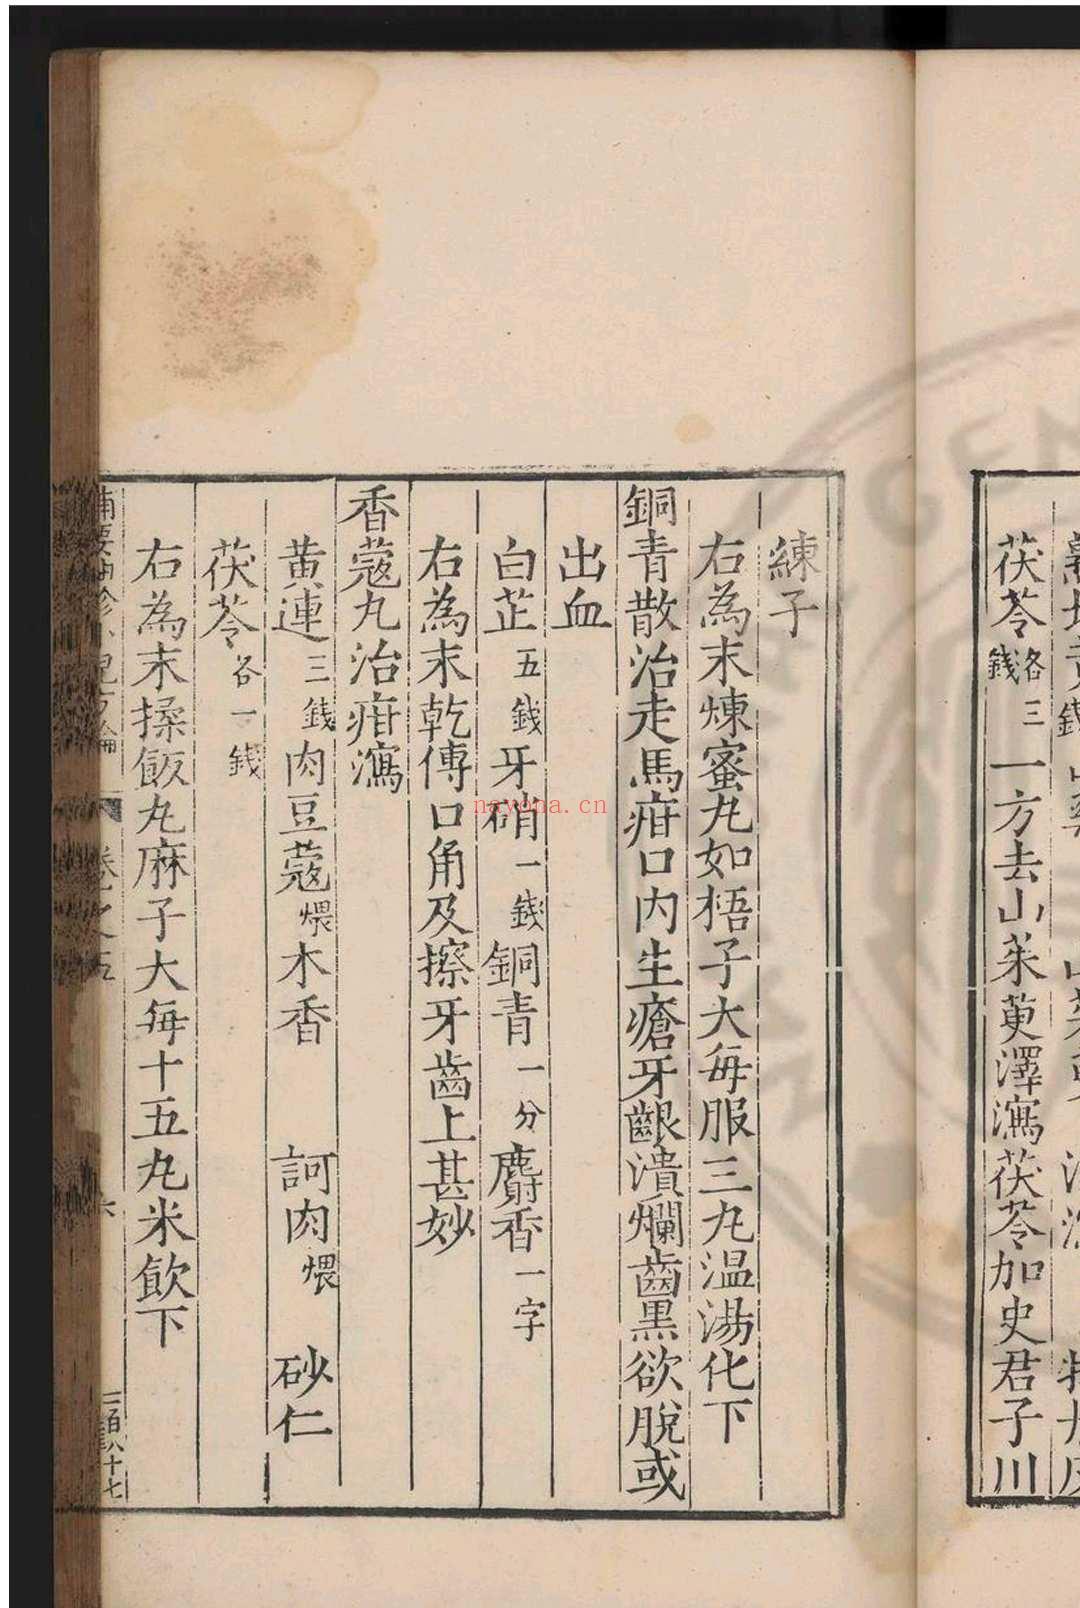 茯苓各三錢一方去山茱萸澤瀉茯苓加史君子川
練子
右為末煉蜜丸如梧子大每服三丸温湯化下
銅青散治走馬疳口內生瘡牙齦潰爛齒黑欲脫或
出血
白芷五錢牙硝一錢銅青一分麝香一字
右為末乾傅口角及擦牙齒上甚妙
香蔻丸治疳瀉
黃連三錢肉豆蔻煨木香 訶肉煨 砂仁
茯苓各一錢
右為末揉飯丸麻子大每十五丸米飲下
卷之五
六
二百八十七
nayona.cn